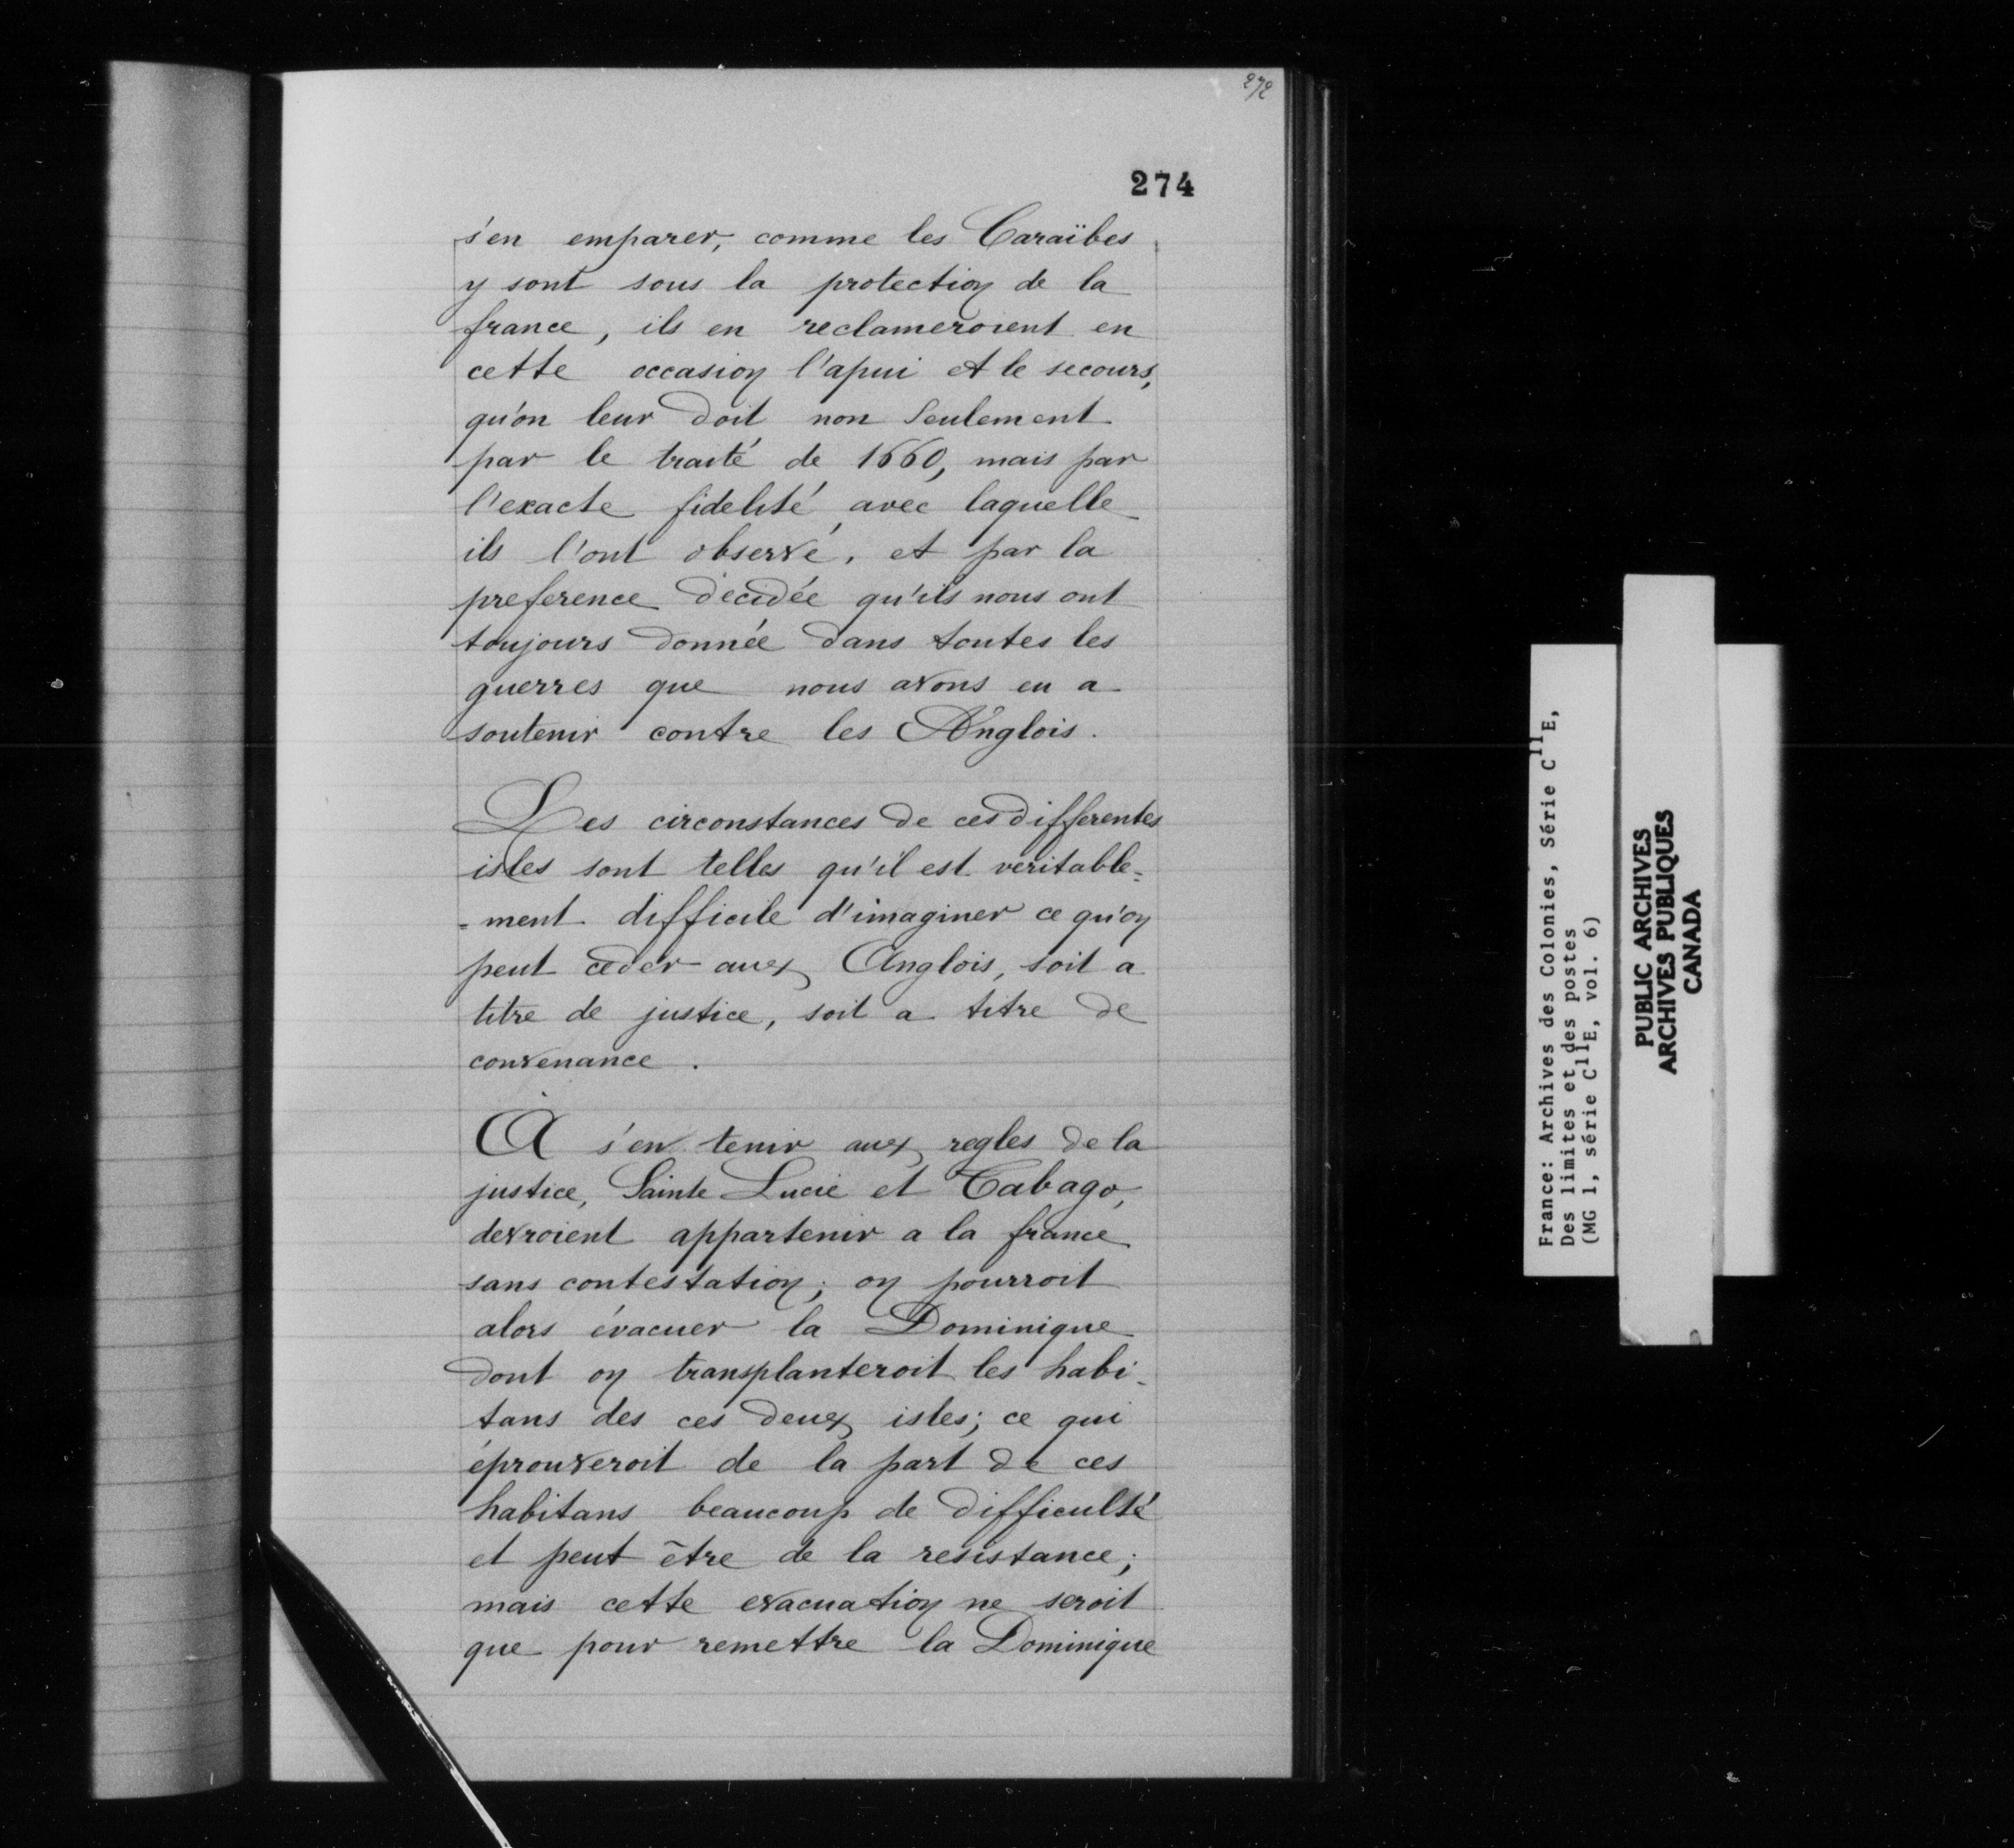 272
274
s'en emparer, comme les Caraïbes
y sont sous la protection de la
france, ils en reclameroient en
cette occasion l'apui et le secours,
qu'on leur doit non seulement
par le traité de 1660, mais par
l'exacte fidelité avec laquelle
ils l'ont observé, et par la
preference décidée qu'ils nous ont
toujours donnée dans toutes les
guerres que nous avons eu a
soutenir contre les Anglois.
Les circonstances de ces differentes
isles sont telles qu'il est veritable=
=ment difficile d'imaginer ce qu'on
peut ceder aux Anglois, soit a
titre de justice, soit a titre de
convenance.
A s'en tenir aux regles de la
justice, Sainte Lucie et Tabago,
devroient appartenir a la france
sans contestation; on pourroit
alors évacuer la Dominique
dont on transplanteroit les habi-
tans des ces deux isles; ce qui
éprouveroit de la part de ces
habitans beaucoup de difficulté
et peut être de la resistance;
mais cette evacuation ne seroit
que pour remettre la Dominique
France: Archives des Colonies, Série C11E,
Des limites et des postes
(MG 1, série C11E, vol. 6)
PUBLIC ARCHIVES
ARCHIVES PUBLIQUES
CANADA